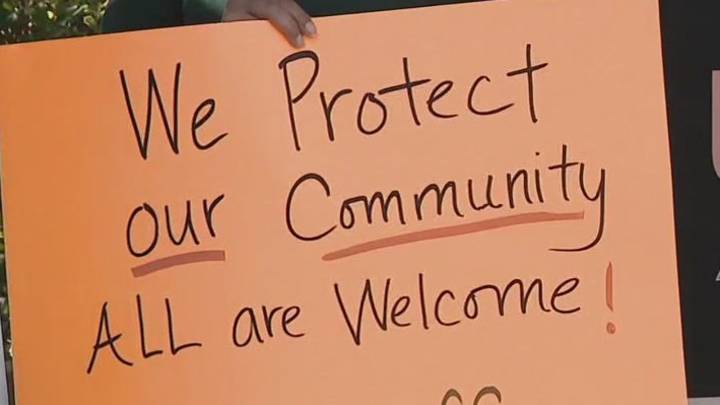 We Protect
our Community
ALL are Welcome!